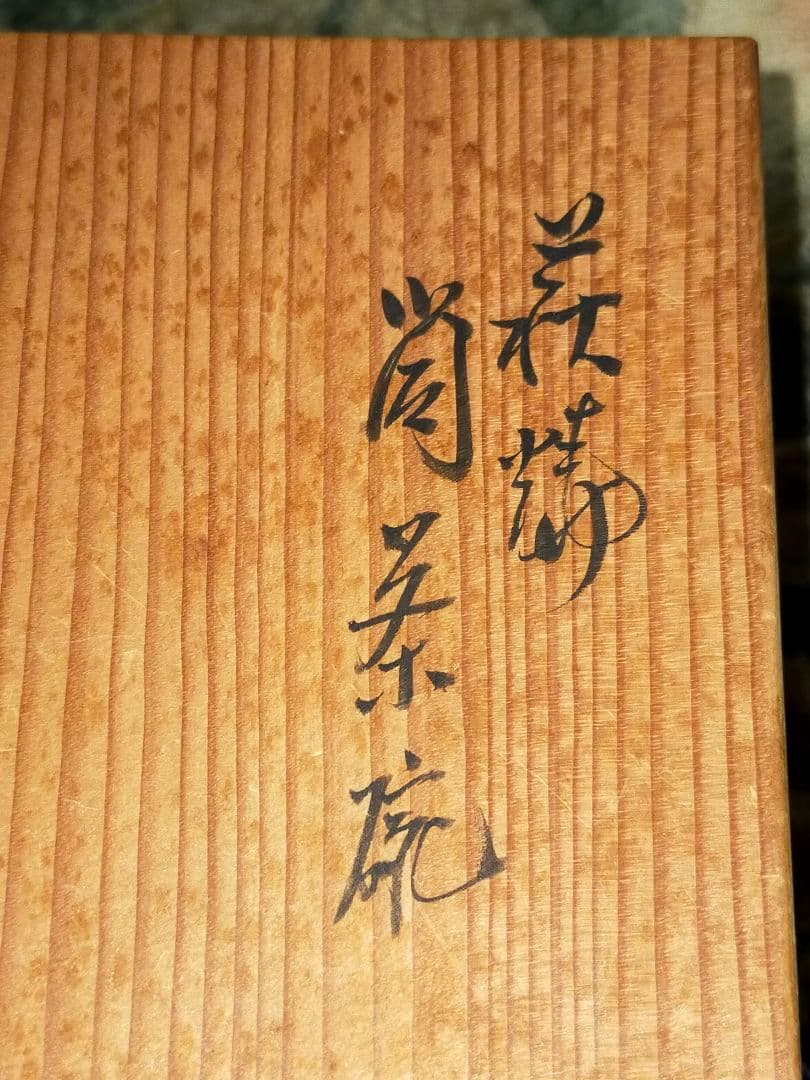 萩焼
筒茶碗